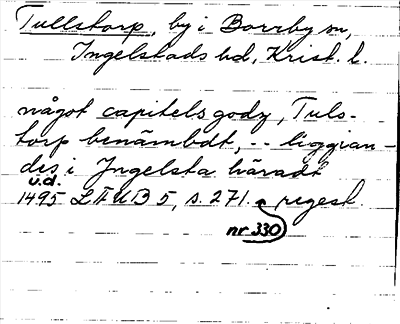 Tullstorp, by i Borrby sn,
Ingelstads hd, Krist. l.
något capitels gody, Tuls-
torp benämbdt, -- liggian-
des i Ingelsta häradt
u.d.
1495 LÄUB 5, s. 271. regest.
nr 330